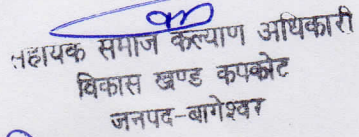 सहायक समाज कल्याण अधिकारी
विकास खण्ड कपकोट
जनपद-बागेश्वर